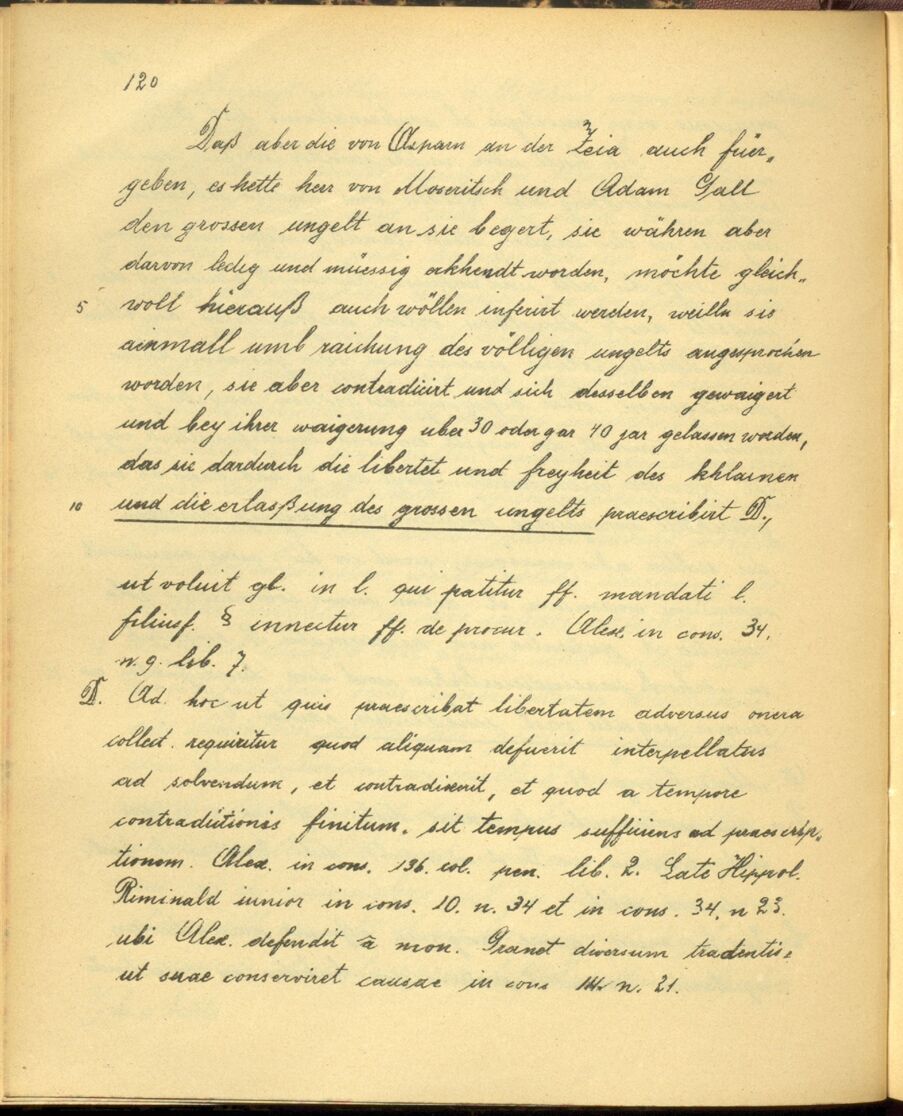 120
Daß aber die von Asparn an der Zeia auch für„
geben, es hette herr von Moseritsch und Adam Gall
den grossen ungelt an sie begert, sie währen aber
darvon ledig und müessig erkhendt worden, möchte gleich„
5 woll hierauß auch wöllen inferirt werden, weilln sie
ainmall umb raichung des völligen ungelts angesprochen
worden, sie aber contradicirt und sich desselben gewaigert
und bey ihrer waigerung uber 30 oder gar 40 jar gelassen worden,
das sie dardurch die libertet und freyheit des khlainen
10 und die erlasßung des grossen ungelts praescribirt D.,
ut voluit gl. in l. qui patitur ff. mandati l.
filiusf. § innectur ff. de procur. Alex. in cons. 34.
n. 9. lib. 7.
D. Ad hoc ut quis praescribat libertatem adversus onera
collect. requiritur quod aliquam defuerit interpellatus
ad solvendum, et contradixerit, et quod a tempore
contradictionis finitum. sit tempus sufficiens ad praescrip„
tionem. Alex. in cons. 136. col. pen. lib. 2. Late Hippol.
Riminald iunior in cons. 10. n. 34 et in cons. 34. n 23.
ubi Alex. defendit à mon. Granet diversum tradentis.
ut suae conserviret causae in cons n. 21.